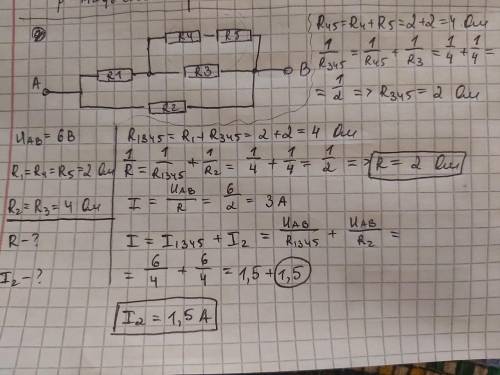 2)
R4 R5
A R1 R3 B
R2
R45 = R4 + R5 = 2 + 2 = 4 Ом
1/R345 = 1/R45 + 1/R3 = 1/4 + 1/4 =
= 1/2 => R345 = 2 Ом
UAB = 6В
R1 = R4 = R5 = 2 Ом
R2 = R3 = 4 Ом
R - ?
I2 - ?
R1345 = R1 + R345 = 2 + 2 = 4 Ом
1/R = 1/R1345 + 1/R2 = 1/4 + 1/4 = 1/2 => R = 2 Ом
I = UAB/R = 6/2 = 3 А
I = I1345 + I2 = UAB/R1345 + UAB/R2 =
= 6/4 + 6/4 = 1,5 + 1,5
I2 = 1,5 А